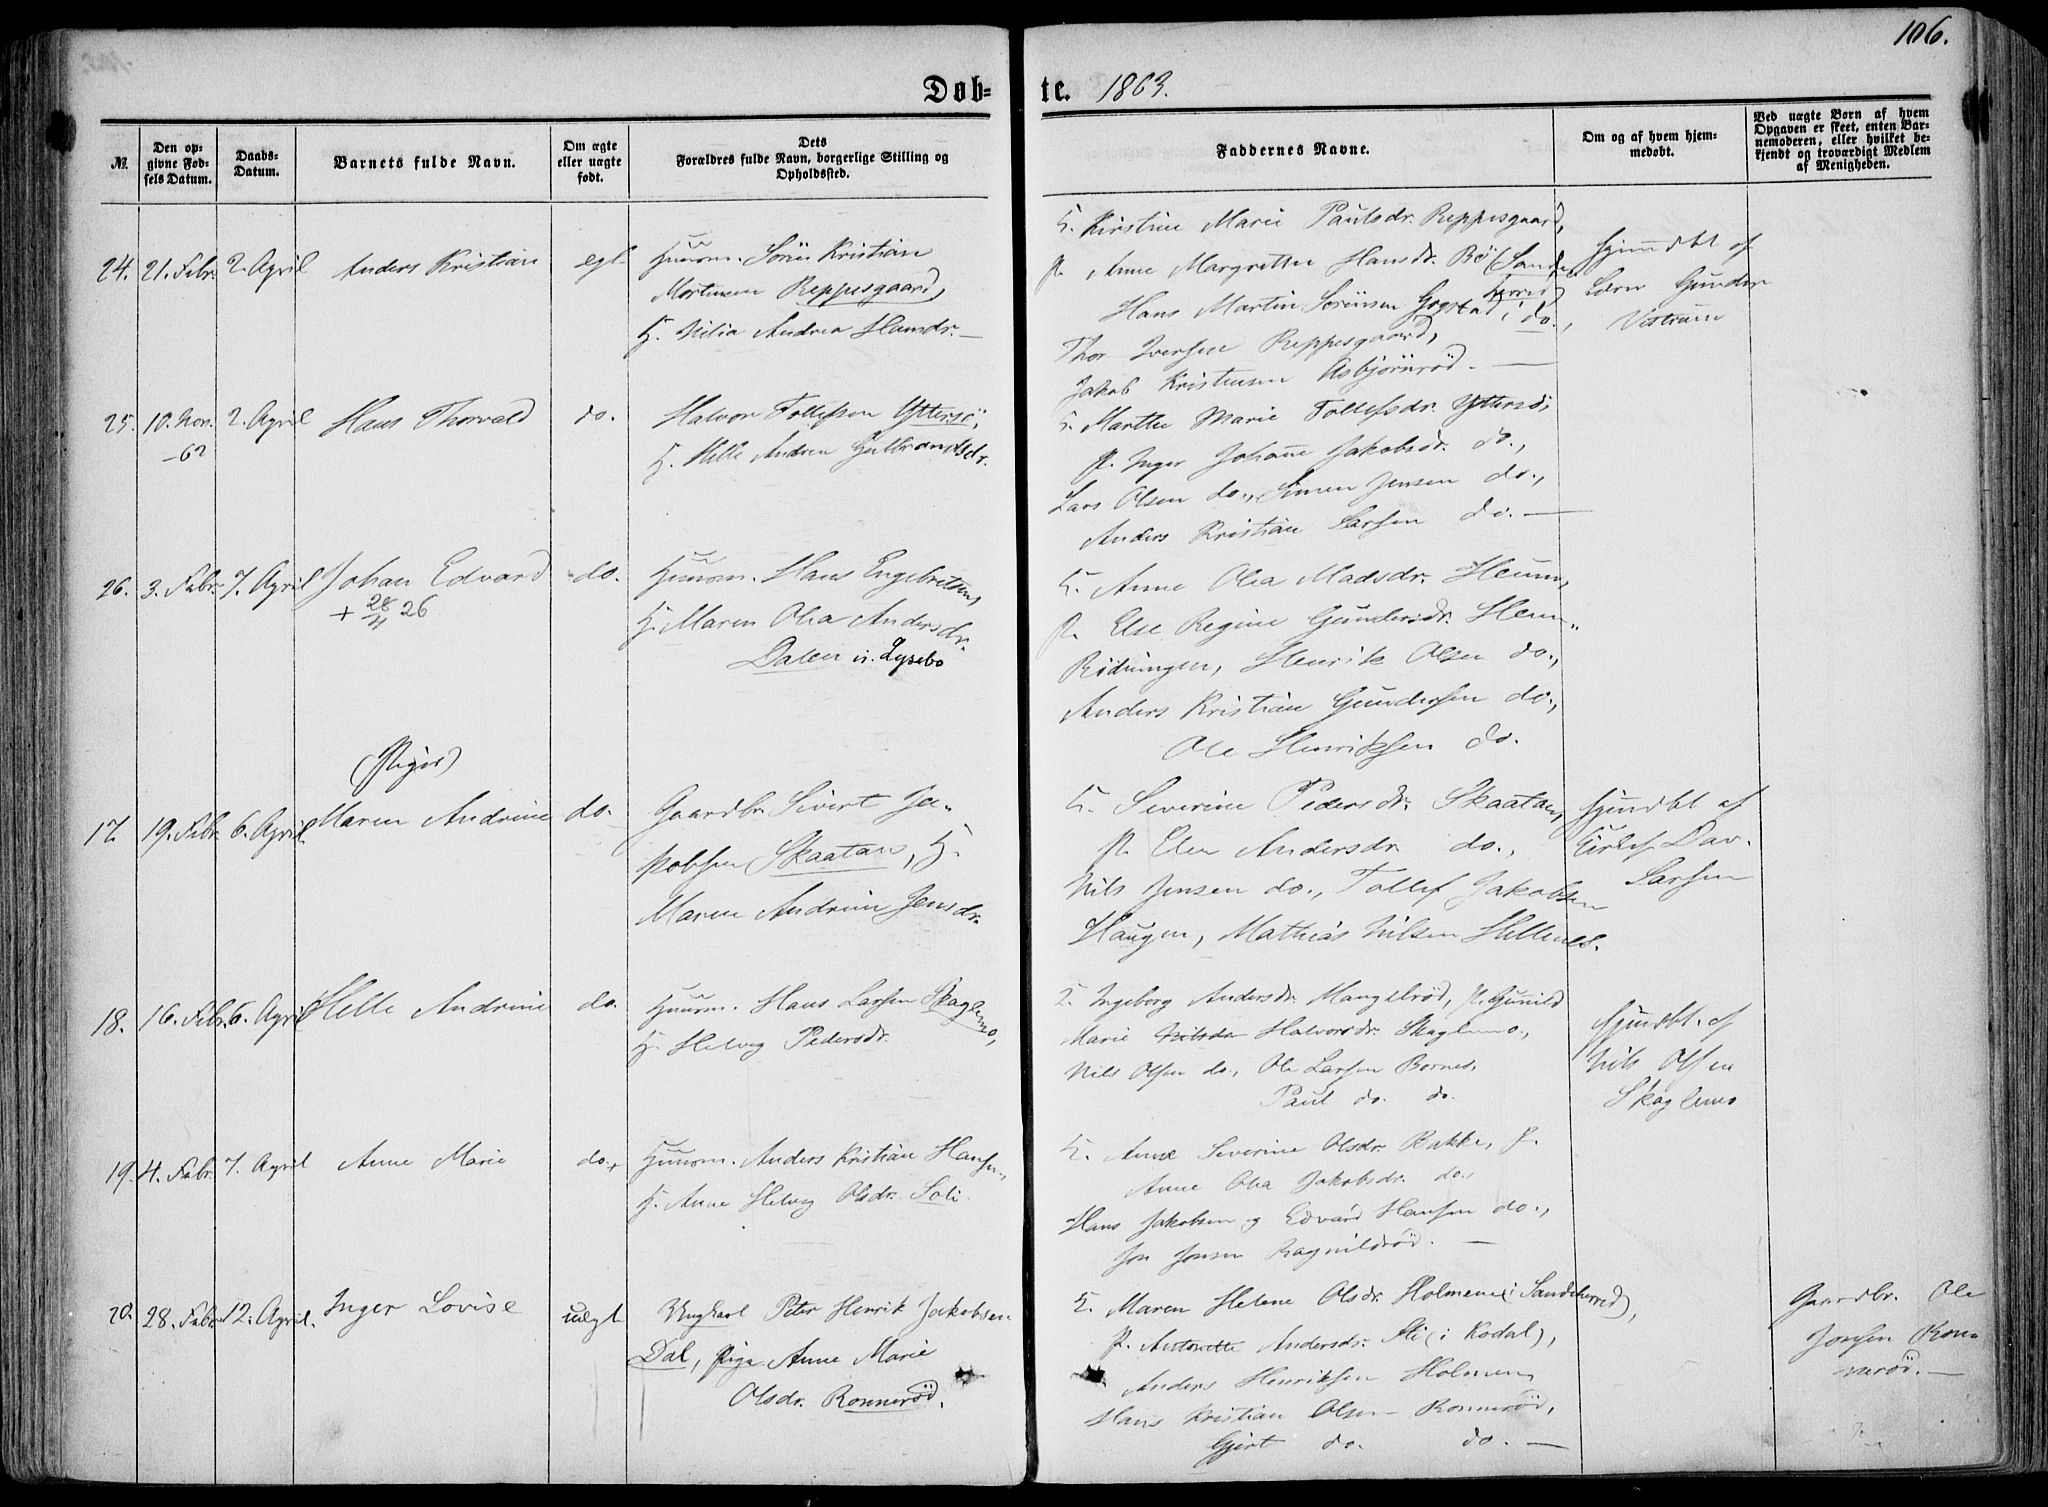 106.
Døb- te. 1863.
№
Den op-
givne Fød-
sels Datum.
Daabs-
Datum.
Barnets fulde Navn.
Om ægte
eller uægte
født.
Dets
Forældres fulde Navn, borgerlige Stilling og
Opholdssted.
Faddernes Navne.
Om og af hvem hjem-
medøbt.
Ved uægte Børn af hvem
Opgaven er skeet, enten Bar-
nemoderen, eller hvilket be-
kjendt og troværdigt Medlem
af Menigheden.
24. 21. Febr. 2. April Anders Kristian egt.
Huusm. Sörin Kristian
Mortensen Reppesgaard,
H. Nilia Andrea Hansdr.—
K. Kirstine Marie Paulsdr. Reppesgaard,
P. Anne Margrethe Hansdr. Bö (Sande-
herred)
Hans Martin Sörensen Gogstad i do.,
Thor Iversen Reppesgaard,
Jakob Kristensen Asbjörnröd. —
Hjemdbt af
Lærer Gunder
Vestrum
25. 10. Nov. 2. April Hans Thorvald do.
-62
Halvor Tollefsen Yttersö,
H. Helle Andrea Gulbrandsdr.
K. Marthe Marie Tollefsdr. Yttersö,
P. Inger Johanne Jakobsdr. do.,
Lars Olsen do., Simen Jensen do.,
Anders Kristian Larsen do. —
26. 3. Febr. 7. April Johan Edvard do.
+ 28/4 26
Huusm. Hans Engebretsen,
H. Maren Olea Andersdr.
Dalen u. Lysebo
K. Anne Olea Madsdr. Heum,
P. Else Regine Gundersdr. Heum-
Rödningen, Henrik Olsen do.,
Anders Kristian Gundersen do.,
Ole Henriksen do.
(Piger)
17. 19. Febr. 6. April Maren Andrine do.
Gaardbr. Sivert Ja-
kobsen Skaatan, H.
Maren Andrine Jensdr.
K. Severine Pedersdr. Skaatan,
P. Elen Andersdr. do.,
Nils Jensen do., Tollef Jakobsen
Haugen, Mathias Nilsen Hellenes.
Hjemdbt af
Eilef Dav.
Larsen
18. 16. Febr. 6. April Helle Andrine do.
Huusm. Hans Larsen Skaglemo,
H. Helvig Pedersdr.
K. Ingeborg Andersdr. Mangelröd, P. Gunild
Marie Nilsdr Halvorsdr. Skaglemo.,
Nils Olsen do., Ole Larsen Bornes,
Paul do. do.
Hjemdbt. af
Nils Olsen
Skaglemo
19. 4. Febr. 7. April Anne Marie do.
Huusm. Anders Kristian Hansen,
H. Anne Helvig Olsdr. Soli.
K. Anne Severine Olsdr. Bakke, P.
Anne Olea Jakobsdr. do.
Hans Jakobsen og Edvard Hansen do.,
Jon Jonsen Ragnildröd. —
20. 28. Febr. 12. April. Inger Lovise uægt
Ungkarl Peter Henrik Jakobsen
Dal, Pige Anne Marie
Olsdr. Ronneröd.
K. Maren Helene Olsdr. Holmene (i Sandeherred),
P. Antonette Andersdr. Sti (i Kodal),
Anders Henriksen Holmen,
Hans Kristian Olsen Ronneröd,
Gjert do. do. —
Gaardbr. Ole
Jonsen Ron-
neröd. —